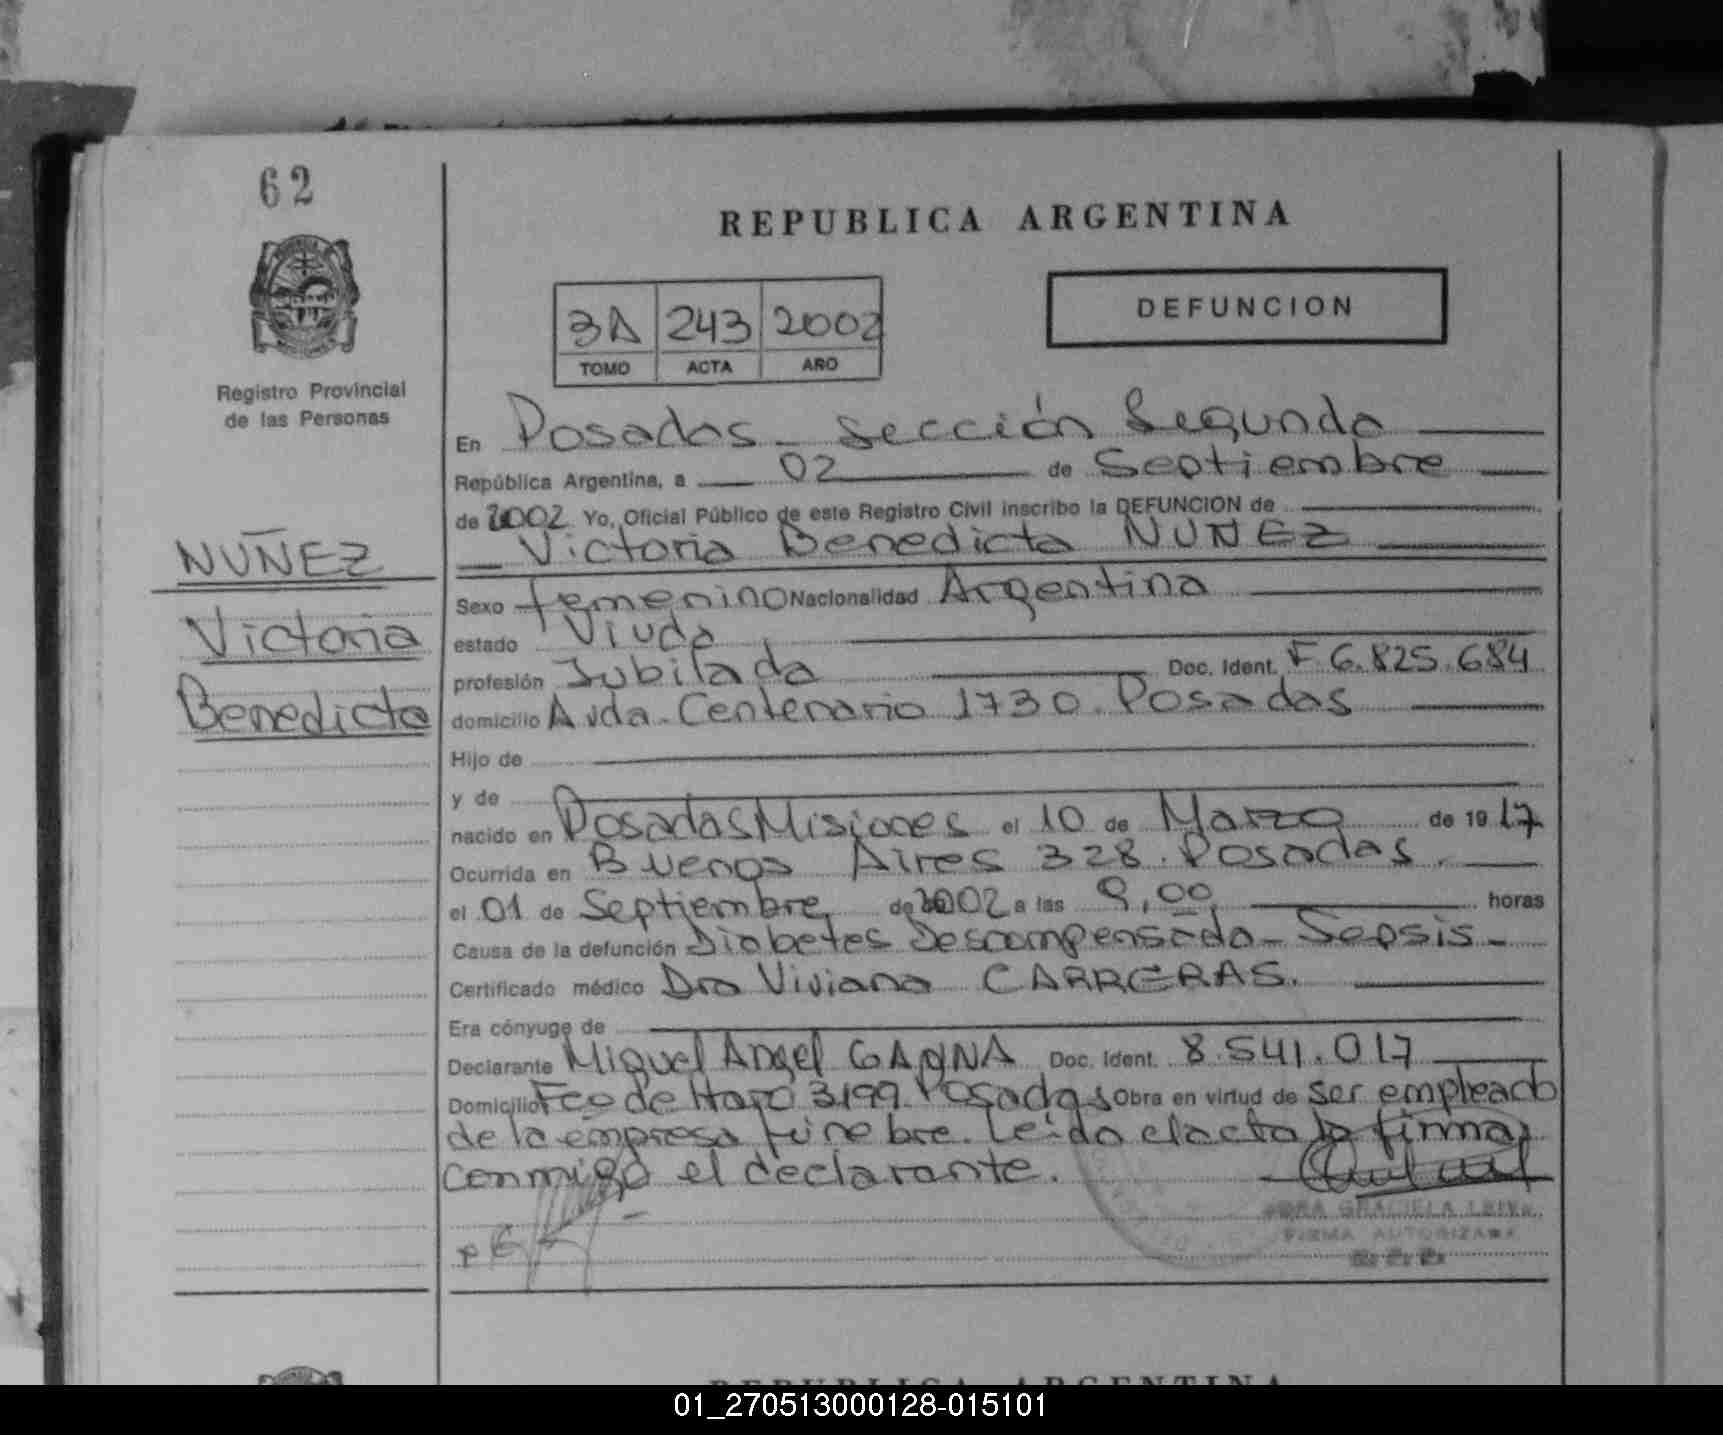 62
REPUBLICA ARGENTINA
3A 243 2002
TOMO ACTA AÑO
DEFUNCION
Registro Provincial
de las Personas
En Posadas - Sección Segunda
República Argentina, a 02 de Septiembre
de 2002 Yo, Oficial Público de este Registro Civil inscribo la DEFUNCION de
Victoria Benedicta NUÑEZ
NUÑEZ
Victoria
Benedicta
Sexo femenino Nacionalidad Argentina
estado Viuda
profesión Jubilada Doc. Ident. F 6.825.684
domicilio Avda. Centenario 1730. Posadas
Hijo de
y de
nacido en Posadas Misiones el 10 de Marzo de 1917
Ocurrida en Buenos Aires 328. Posadas.
el 01 de Septiembre de 2002 a las 9,00 horas
Causa de la defunción Diabetes Descompensada - Sepsis -
Certificado médico Dra Viviana CARRERAS.
Era cónyuge de
Declarante Miguel Angel Doc. Ident. 8.541.017
Domicilio Fco de Haro 3199. Posadas Obra en virtud de ser empleado
de la empresa fúnebre. Leída el acta la firma
conmigo el declarante.
GRACIELA
FIRMA AUTORIZADA
REPUBLICA ARGENTINA
01_270513000128-015101